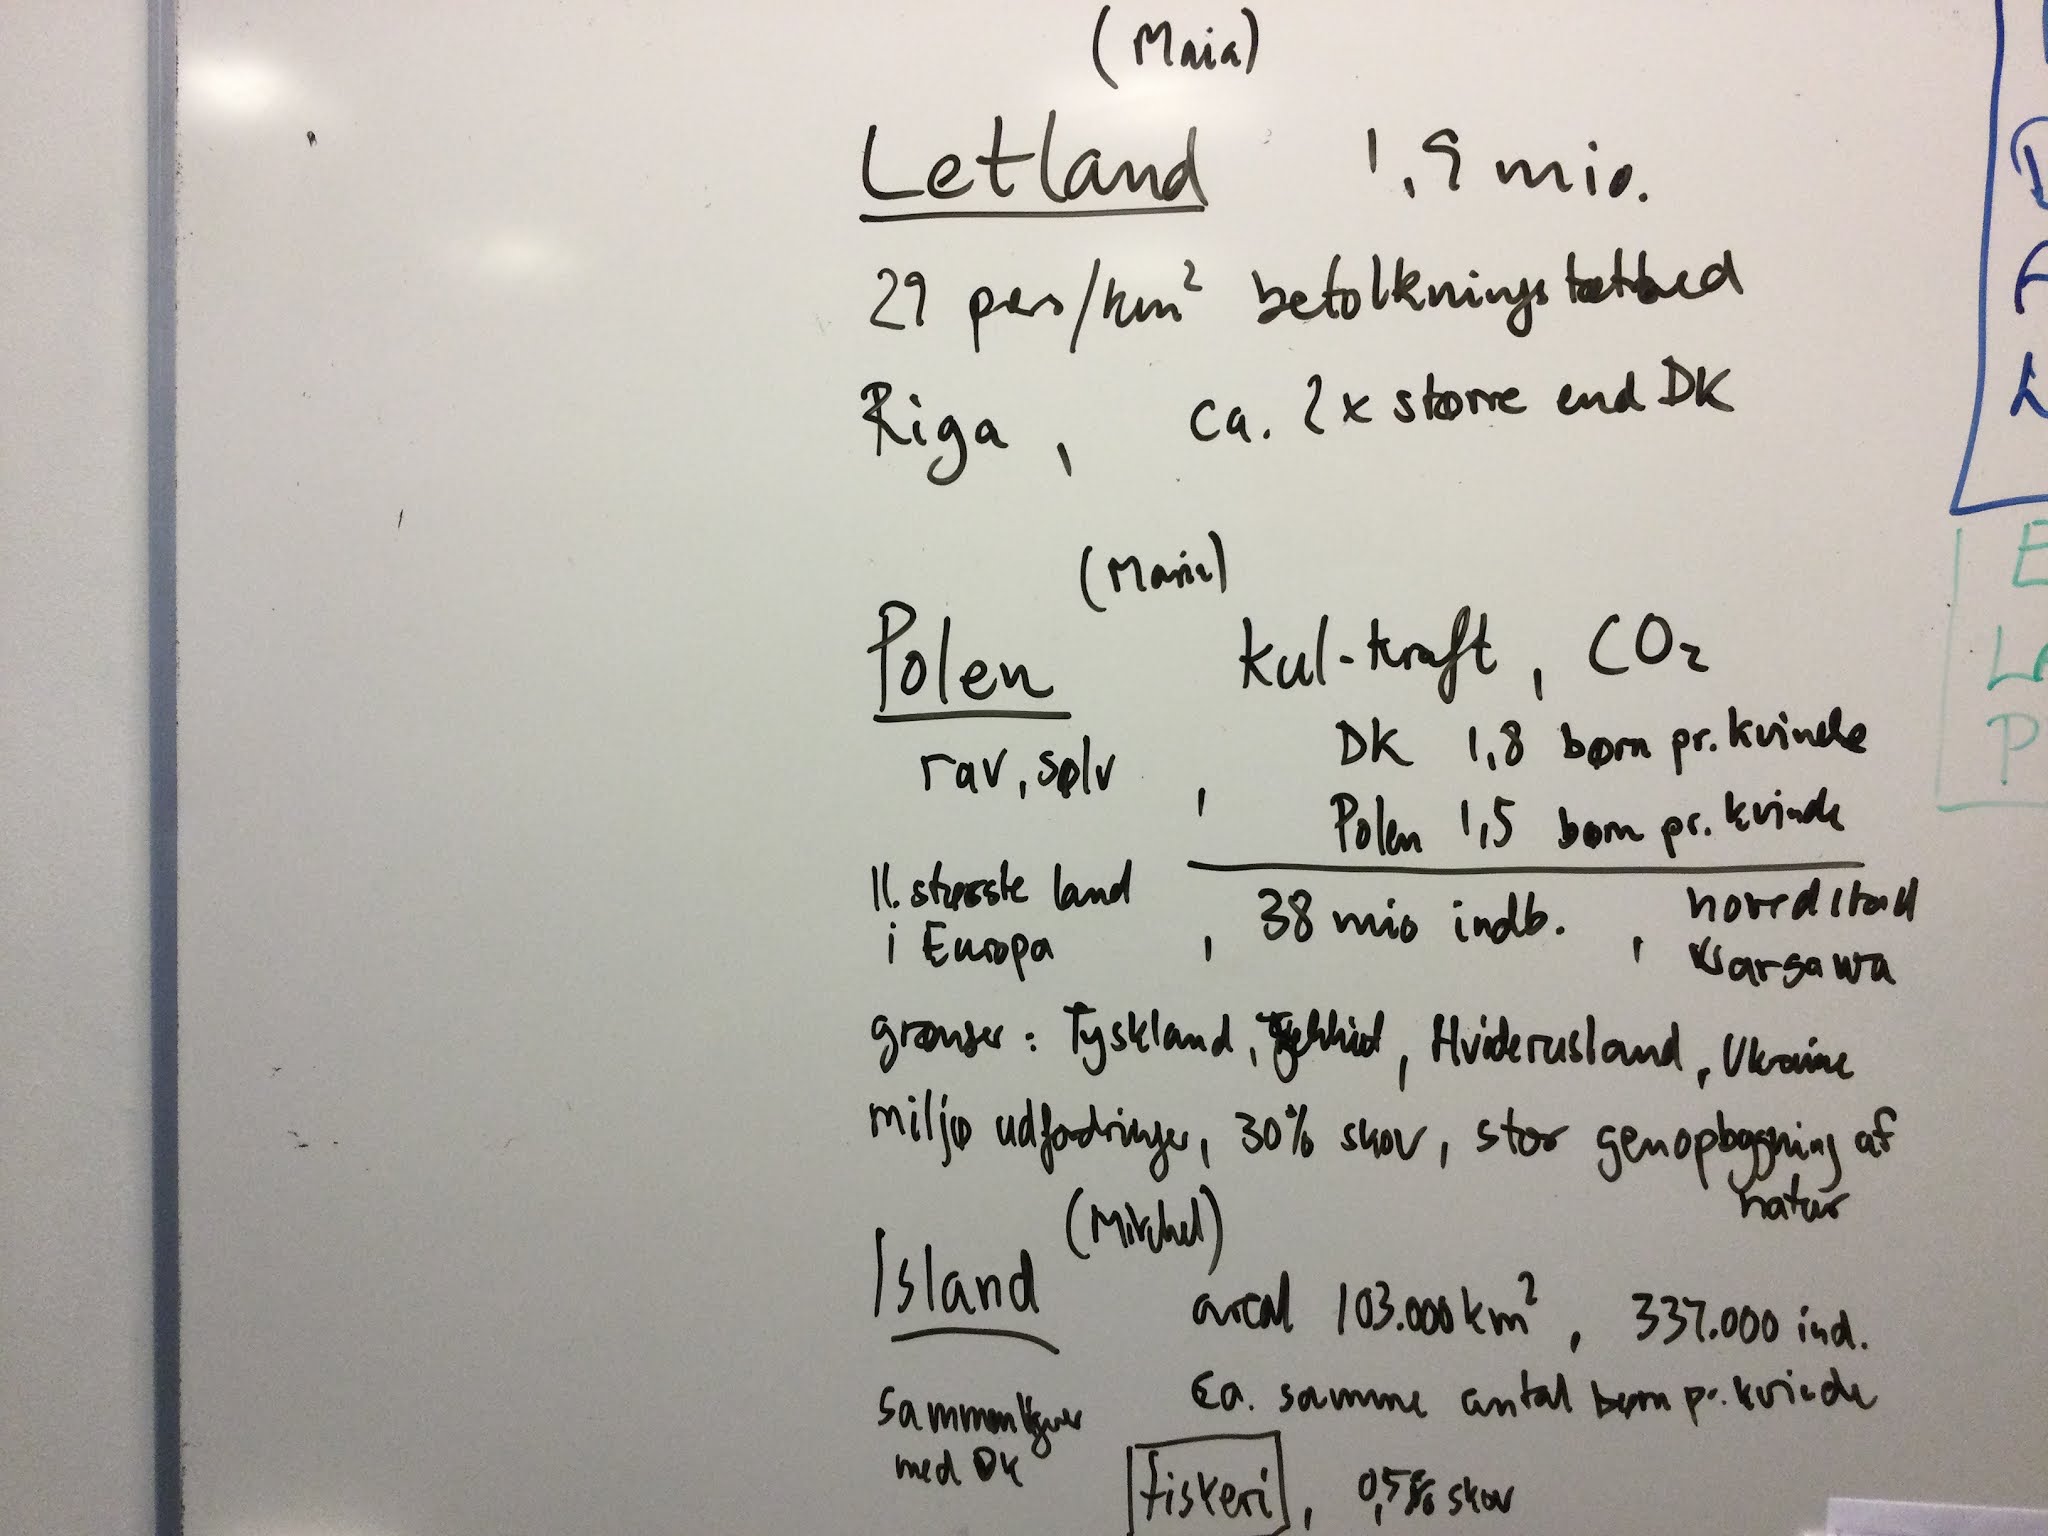 (Maia)
Letland 1,9 mio.
29 pers/km² befolkningstæthed
Riga, ca. 2x større end DK
(Marie)
Polen kul-kraft, CO₂
rav, sølv, DK 1,8 børn pr. kvinde
Polen 1,5 børn pr. kvinde
11. største land
i Europa, 38 mio indb., hovedstad
Warsawa
grænser: Tyskland, Tjekkiet, Hviderusland, Ukraine
miljø udfordringer, 30% skov, stor genopbygning af
natur
(Michel)
Island areal 103.000 km², 337.000 ind.
sammenligner ca. samme antal børn pr. kvinde
med DK
fiskeri, 0,5% skov
D
A
E
L
P